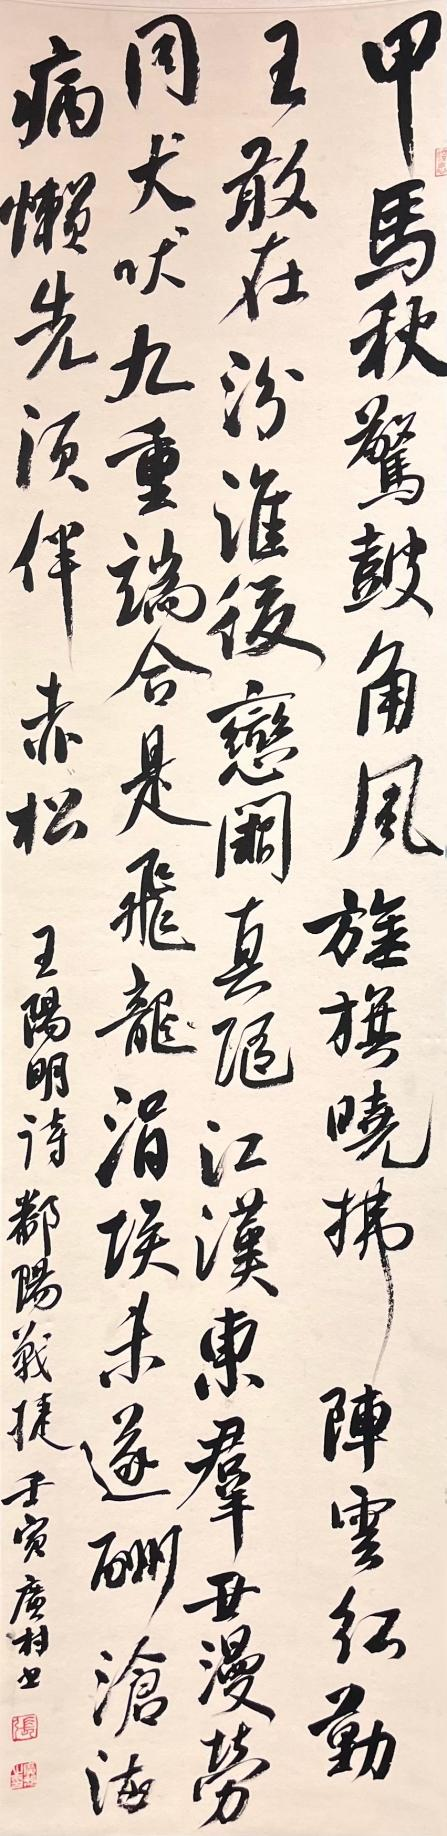 甲馬秋驚鼓角風旌旗曉拂陣雲紅勤
王敢在汾淮後戀闕真隨江漢東群丑漫勞
同犬吠九重端合是飛龍涓埃未遂酬滄海
病懶先須伴赤松
王陽明詩鄱陽戰捷壬寅廣村書
張